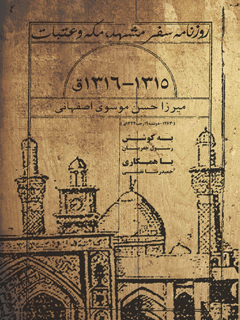 روزنامه سفر مشهد، مکه و عتبات
۱۳۱۵-۱۳۱۶ق
میرزا حسن موسوی اصفهانی
به کوشش
رسول جعفریان
با همکاری